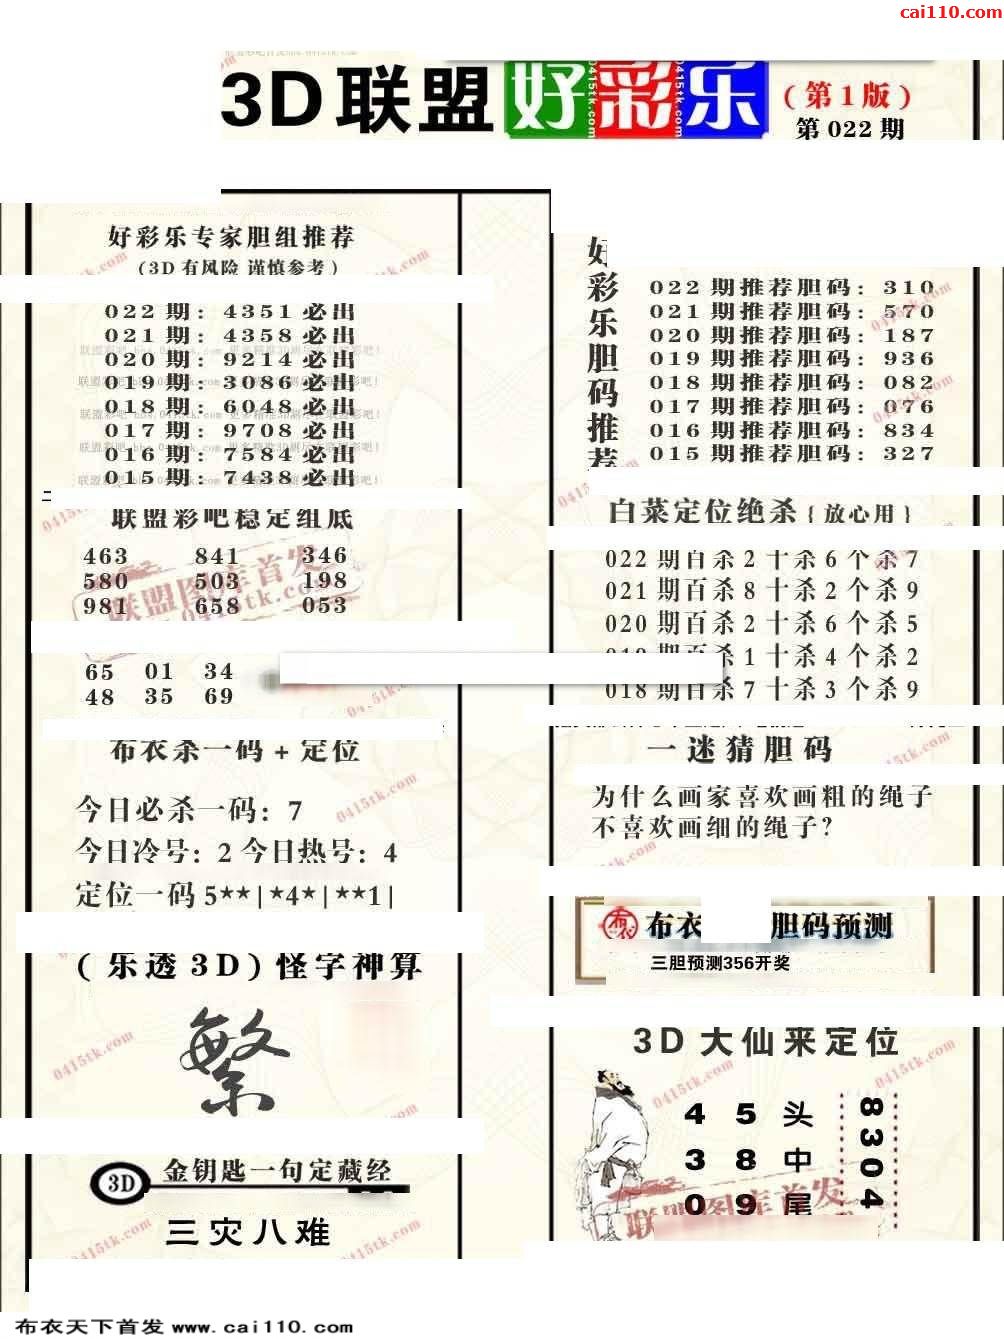 cai110.com
3D联盟 好彩乐 (第1版)
第022期
好彩乐专家胆组推荐
(3D有风险 谨慎参考)
022期: 4351必出
021期: 4358必出
020期: 9214必出
019期: 3086必出
018期: 6048必出
017期: 9708必出
016期: 7584必出
015期: 7438必出
联盟彩吧稳定组底
463 841 346
580 503 198
981 658 053
65 01 34
48 35 69
布衣杀一码+定位
今日必杀一码: 7
今日冷号: 2 今日热号: 4
定位一码 5**|*4*|**1|
(乐透3D)怪字神算
繁
3D 金钥匙一句定藏经
三灾八难
好彩乐胆码推荐
022期推荐胆码: 310
021期推荐胆码: 570
020期推荐胆码: 187
019期推荐胆码: 936
018期推荐胆码: 082
017期推荐胆码: 076
016期推荐胆码: 834
015期推荐胆码: 327
白菜定位绝杀{放心用}
022期百杀2十杀6个杀7
021期百杀8十杀2个杀9
020期百杀2十杀6个杀5
杀1十杀4个杀2
018期百杀7十杀3个杀9
一迷猜胆码
为什么画家喜欢画粗的绳子
不喜欢画细的绳子?
布衣 布衣 胆码预测
三胆预测356开奖
3D大仙来定位
4 5 头
3 8 中
0 9 尾
8304
联盟图库首发
0415tk.com
布衣天下首发 www.cai110.com